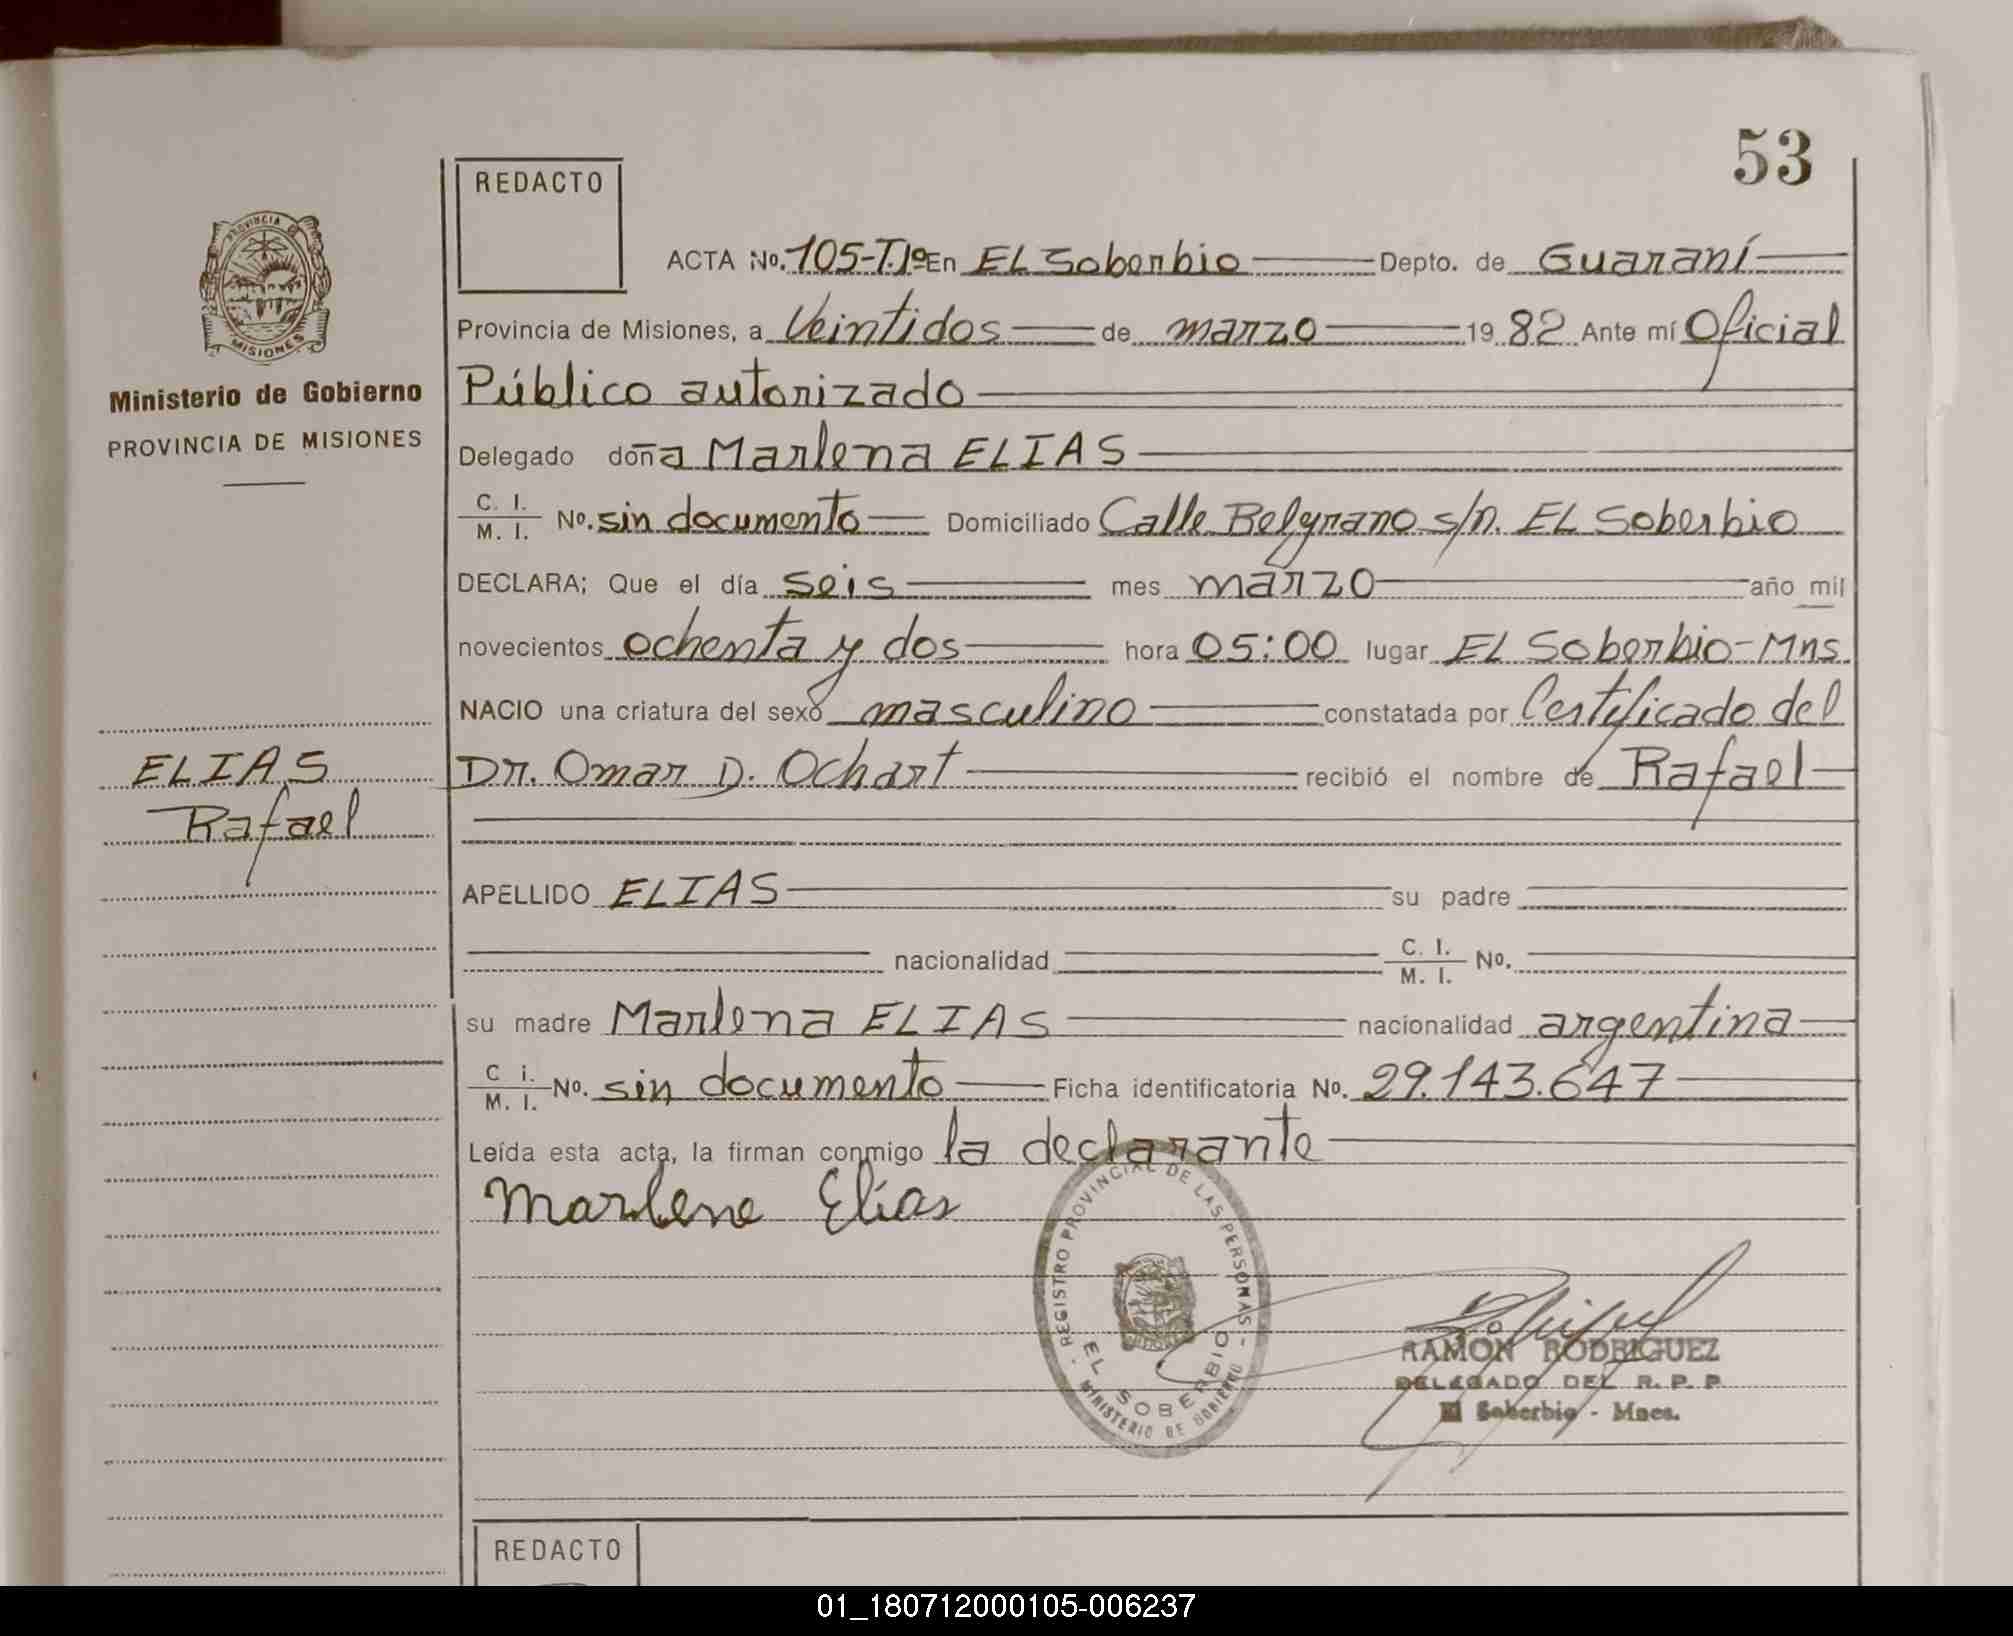 53
REDACTO
PROVINCIA
MISIONES
ACTA No. 105-T.1º En EL Soberbio Depto. de Guaraní
Provincia de Misiones, a Veintidos de marzo 19 82 Ante mí Oficial
Público autorizado
Ministerio de Gobierno
PROVINCIA DE MISIONES
Delegado doña Marlena ELIAS
C. I. / M. I. No. sin documento Domiciliado Calle Belgrano s/n. EL Soberbio
DECLARA; Que el día seis mes marzo año mil
novecientos ochenta y dos hora 05:00 lugar EL Soberbio-Mns.
NACIO una criatura del sexo masculino constatada por Certificado del
Dr. Omar D. Ochart recibió el nombre de Rafael
ELIAS
Rafael
APELLIDO ELIAS su padre
nacionalidad C. I. / M. I. No.
su madre Marlena ELIAS nacionalidad argentina
C i. / M. I. No. sin documento Ficha identificatoria No. 29.143.647
Leída esta acta, la firman conmigo la declarante
Marlene Elías
REGISTRO PROVINCIAL DE LAS PERSONAS - MINISTERIO DE GOBIERNO -
EL SOBERBIO
RAMON RODRIGUEZ
DELEGADO DEL R. P. P.
El Soberbio - Mnes.
REDACTO
01_180712000105-006237